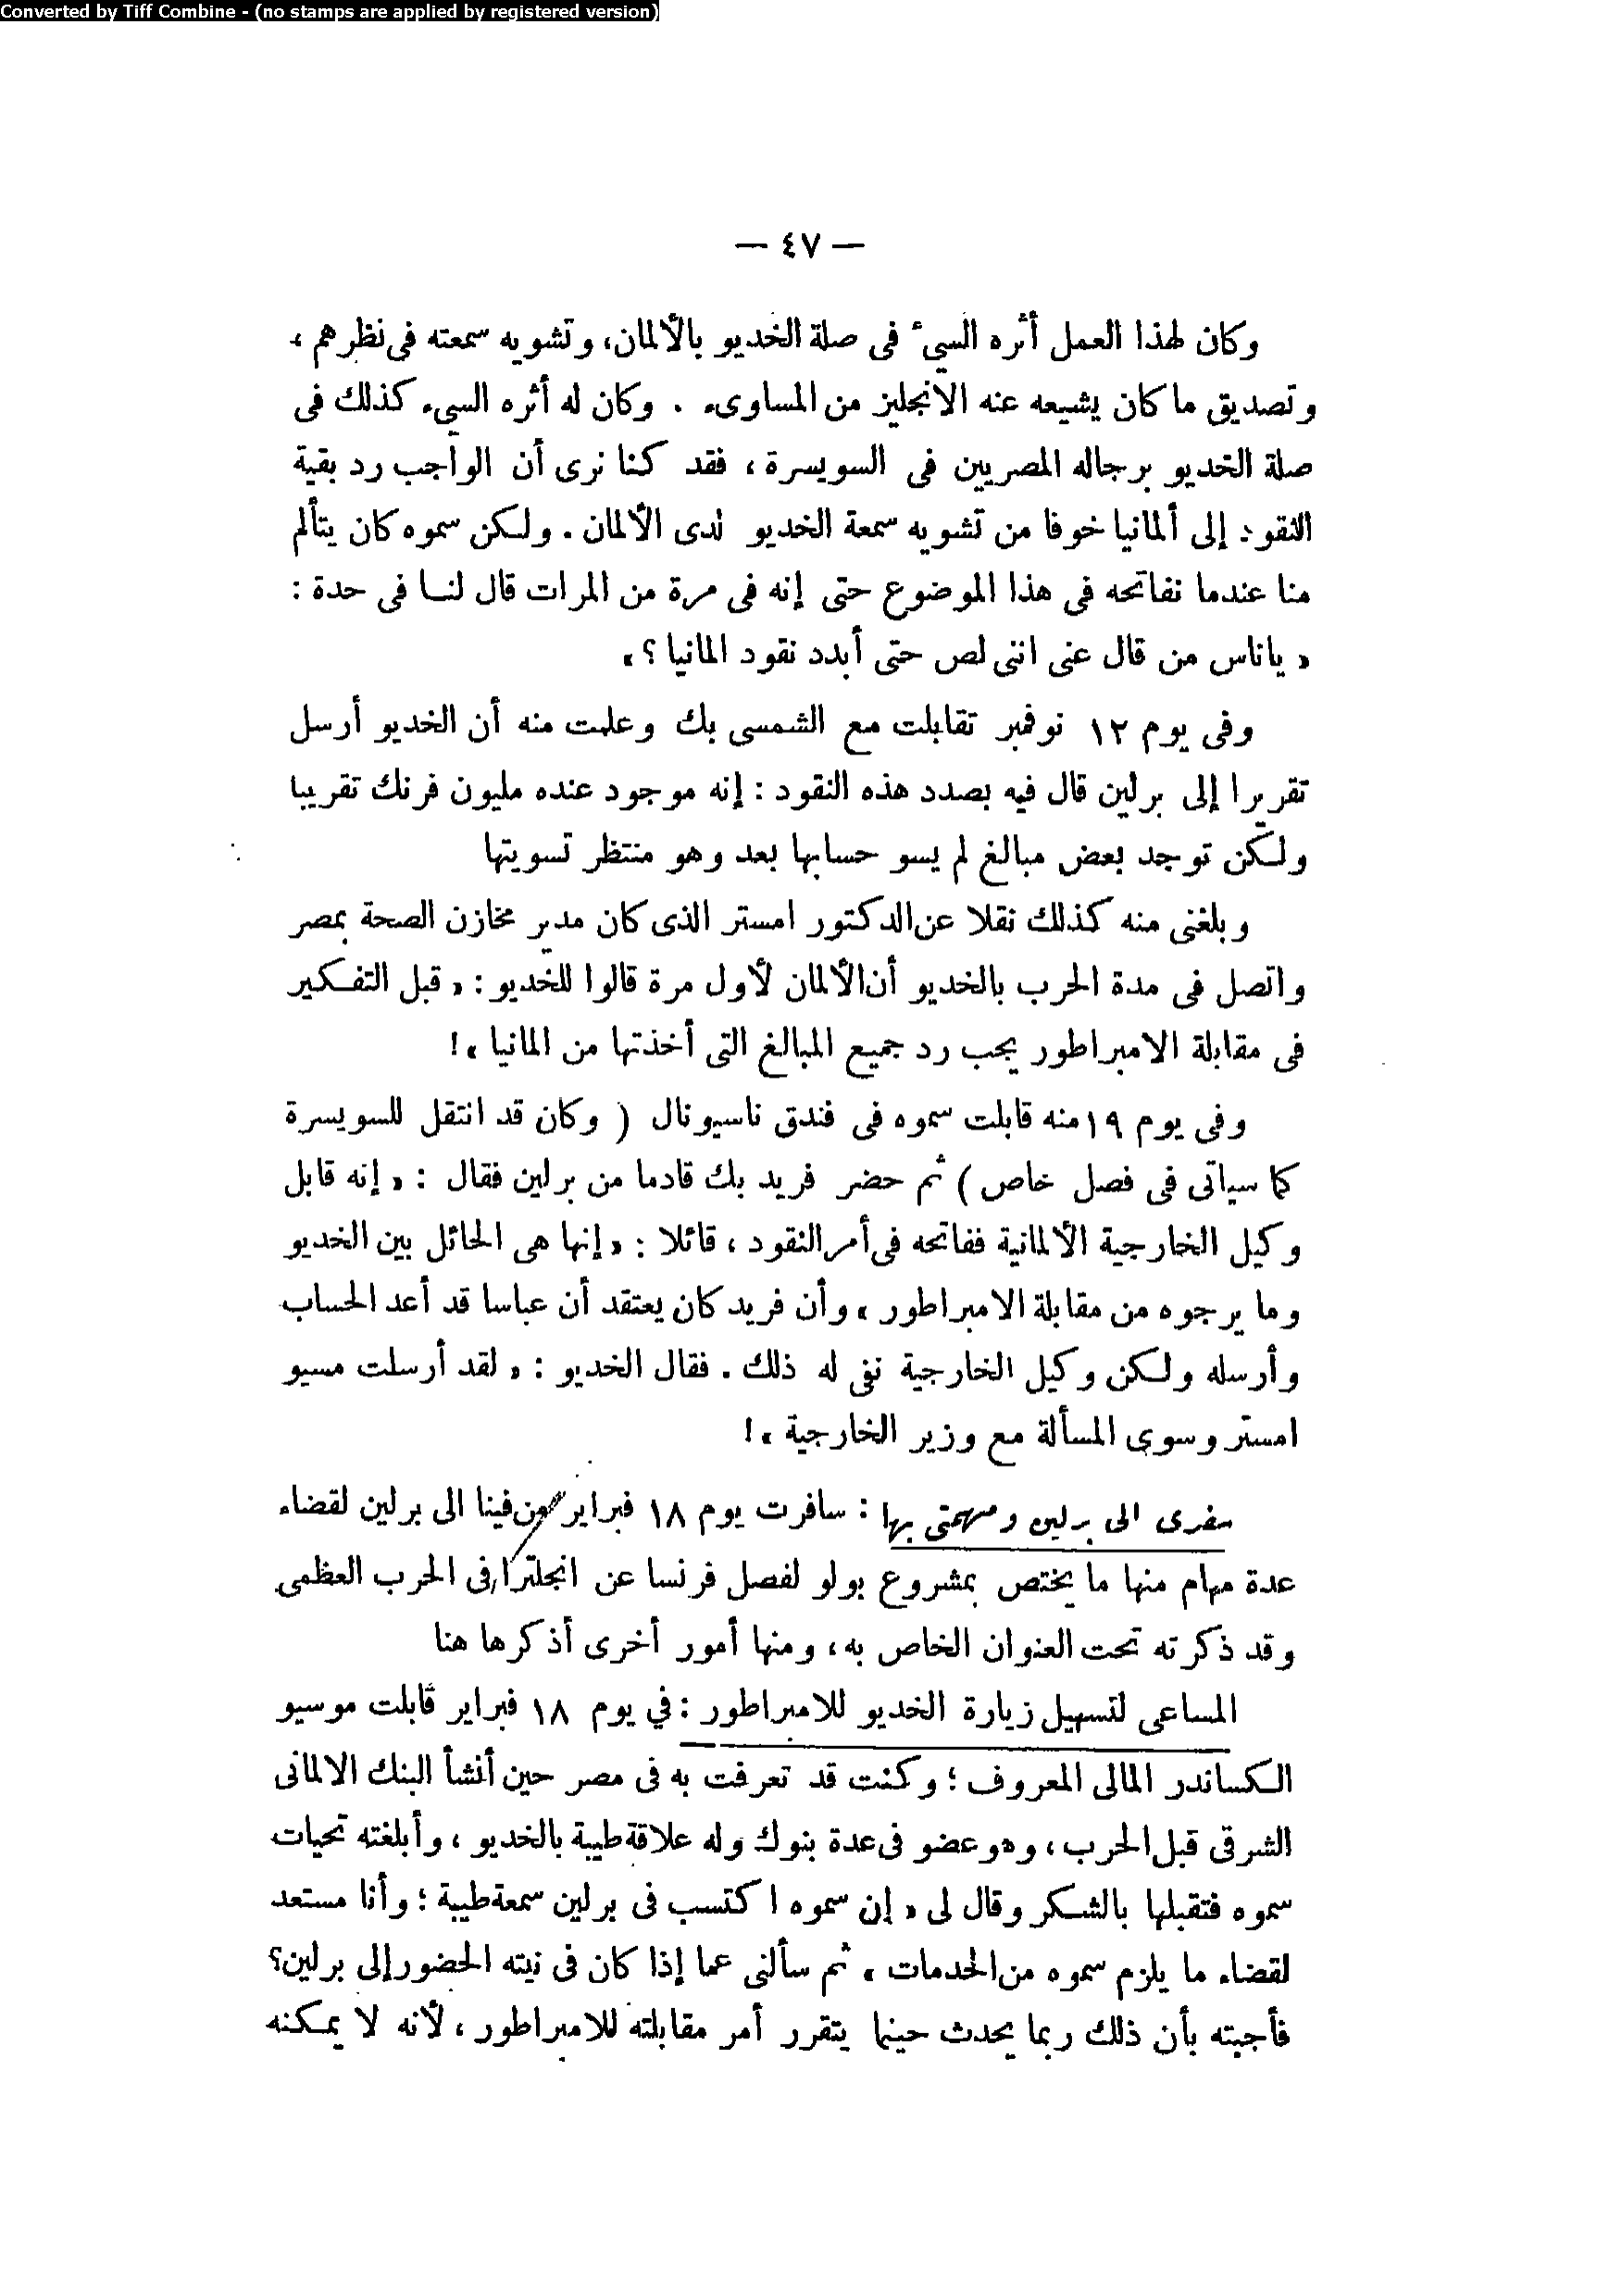 Converted by Tiff Combine - (no stamps are applied by registered version)
— ٤٧ —
وكان لهذا العمل أثره السيء فى صلة الخديو بالألمان، وتشويه سمعته فى نظرهم،
وتصديق ما كان يشيعه عنه الانجليز من المساوىء . وكان له أثره السيء كذلك فى
صلة الخديو برجاله المصريين فى السويسرة، فقد كنا نرى أن الواجب رد بقية
النقود إلى ألمانيا خوفا من تشويه سمعة الخديو لدى الألمان . ولكن سموه كان يتألم
منا عندما نفاتحه فى هذا الموضوع حتى إنه فى مرة من المرات قال لنا فى حدة :
« ياناس من قال عنى اننى لص حتى أبدد نقود المانيا ؟ »
وفى يوم ١٢ نوفمبر تقابلت مع الشمسى بك وعلمت منه أن الخديو أرسل
تقريرا إلى برلين قال فيه بصدد هذه النقود : إنه موجود عنده مليون فرنك تقريبا
ولكن توجد بعض مبالغ لم يسو حسابها بعد وهو منتظر تسويتها
وبلغنى منه كذلك نقلا عن الدكتور امستر الذى كان مدير مخازن الصحة بمصر
واتصل فى مدة الحرب بالخديو أن الألمان لأول مرة قالوا للخديو : « قبل التفكير
فى مقابلة الامبراطور يجب رد جميع المبالغ التى أخذتها من المانيا » !
وفى يوم ١٩ منه قابلت سموه فى فندق ناسيونال ( وكان قد انتقل للسويسرة
كما سياتى فى فصل خاص ) ثم حضر فريد بك قادما من برلين فقال : « إنه قابل
وكيل الخارجية الألمانية ففاتحه فى أمر النقود ، قائلا : « إنها هى الحائل بين الخديو
وما يرجوه من مقابلة الامبراطور » وأن فريد كان يعتقد أن عباسا قد أعد الحساب
وأرسله ولكن وكيل الخارجية نفى له ذلك . فقال الخديو : « لقد أرسلت مسيو
امستر وسوى المسألة مع وزير الخارجية » !
سفرى الى برلين ومهمتى بها : سافرت يوم ١٨ فبراير من فينا الى برلين لقضاء
عدة مهام منها ما يختص بمشروع بولو لفصل فرنسا عن انجلترا فى الحرب العظمى
وقد ذكرته تحت العنوان الخاص به ، ومنها أمور أخرى أذكرها هنا
المساعى لتسهيل زيارة الخديو للامبراطور : في يوم ١٨ فبراير قابلت موسيو
الكساندر المالى المعروف ؛ وكنت قد تعرفت به فى مصر حين أنشأ البنك الالمانى
الشرقى قبل الحرب ، وهو عضو فى عدة بنوك وله علاقة طيبة بالخديو ، وأبلغته تحيات
سموه فتقبلها بالشكر وقال لى « إن سموه اكتسب فى برلين سمعة طيبة ؛ وأنا مستعد
لقضاء ما يلزم سموه من الخدمات » ثم سألنى عما إذا كان فى نيته الحضور إلى برلين؟
فأجبته بأن ذلك ربما يحدث حينما يتقرر أمر مقابلته للامبراطور ، لأنه لا يمكنه